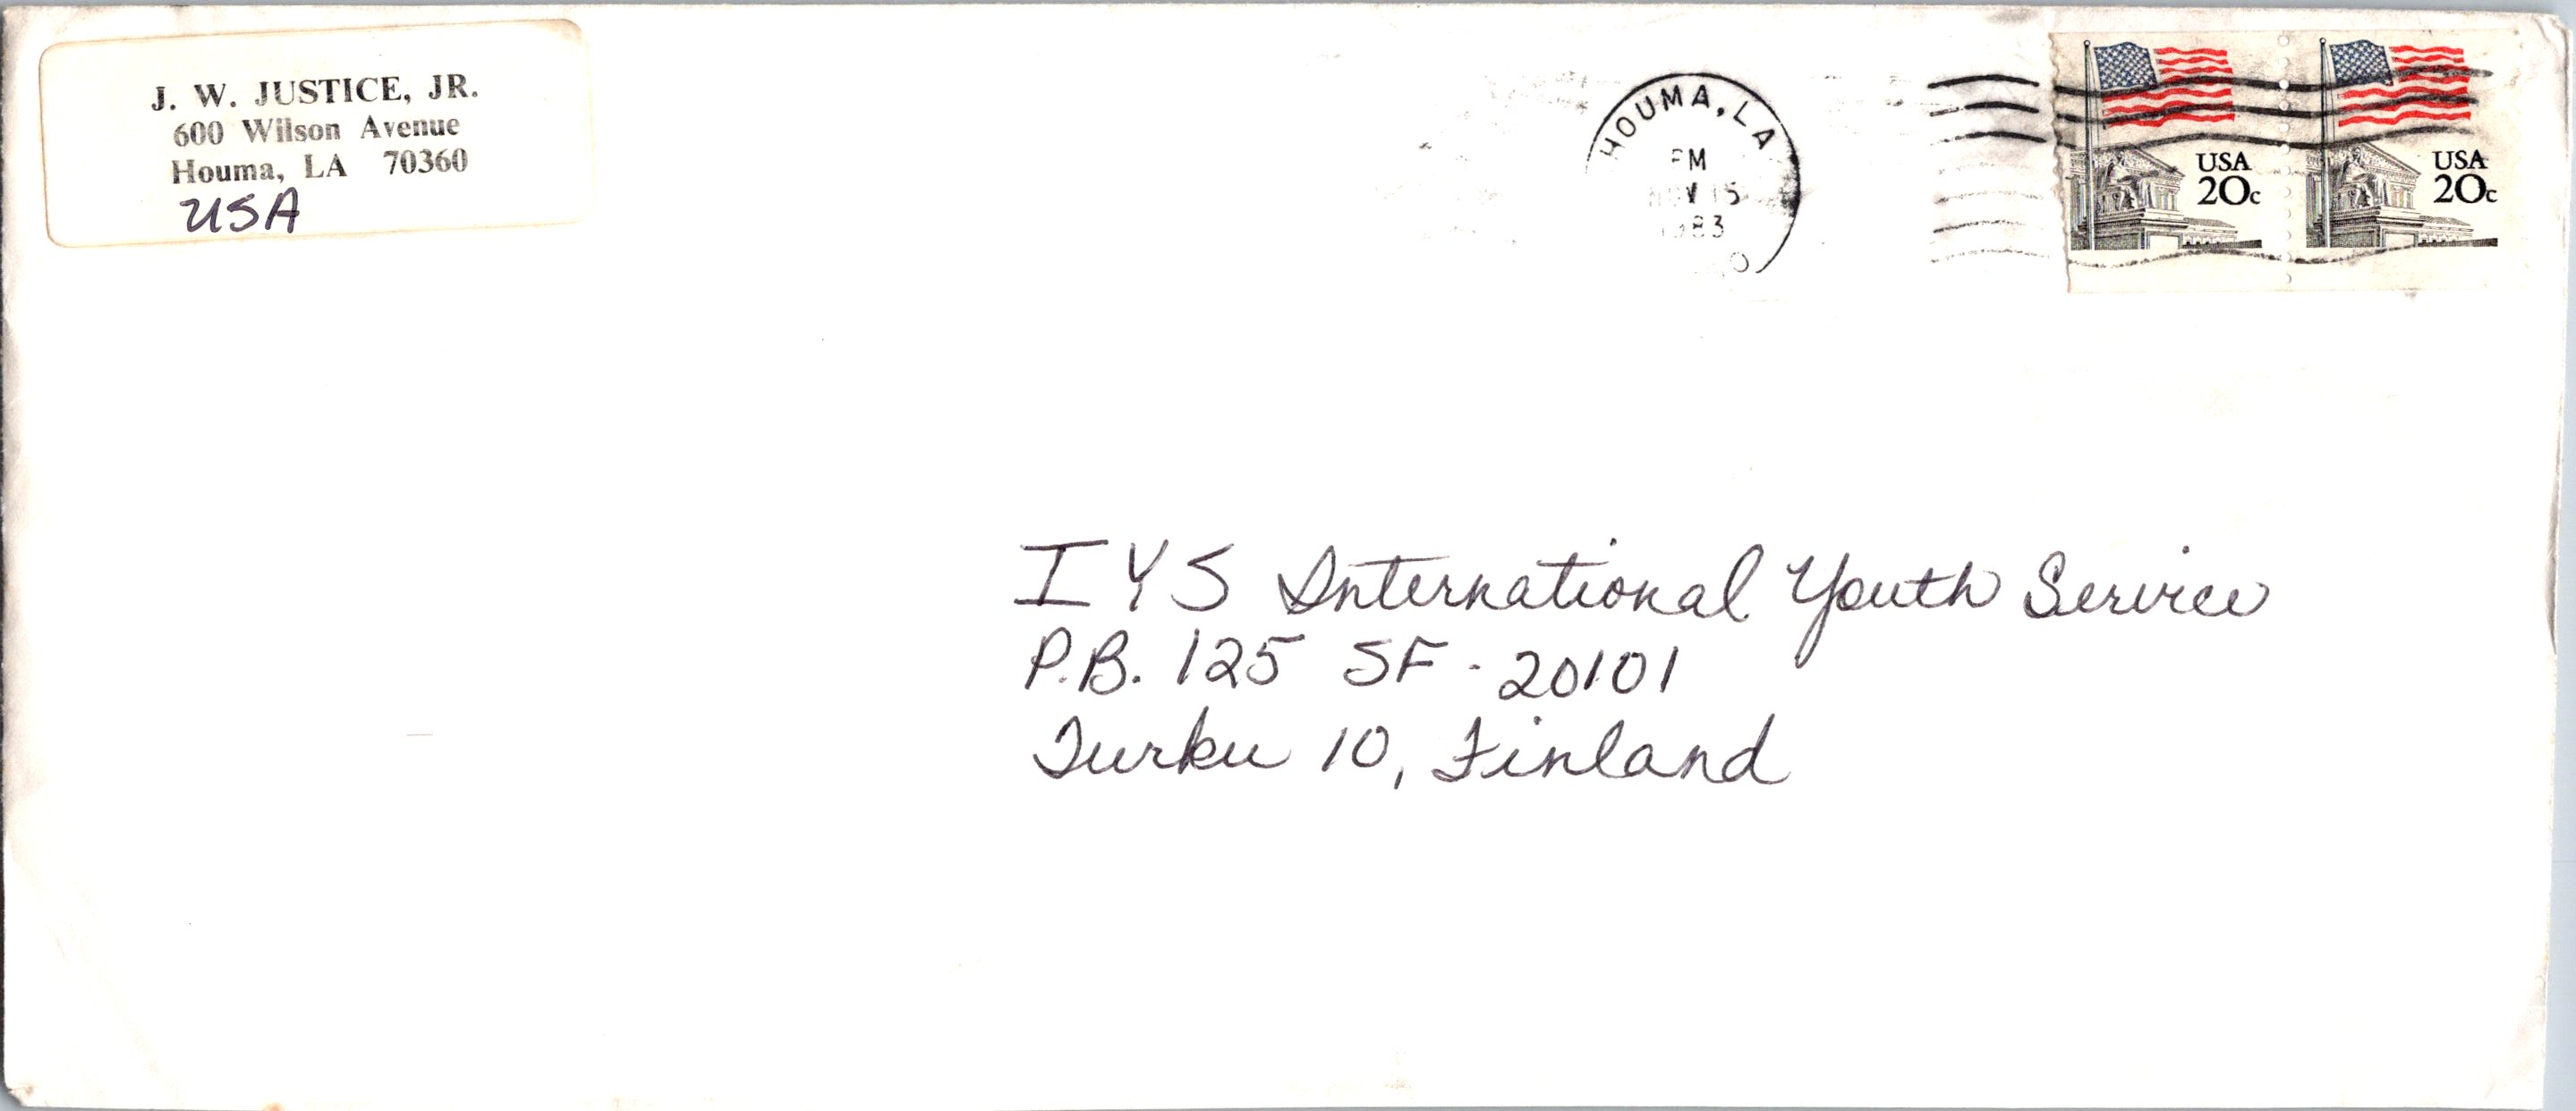 J. W. JUSTICE, JR.
600 Wilson Avenue
Houma, LA 70360
USA
HOUMA, LA
PM
NOV 15
1983
USA
20c
USA
20c
I Y S International Youth Service
P.B. 125 SF - 20101
Turku 10, Finland